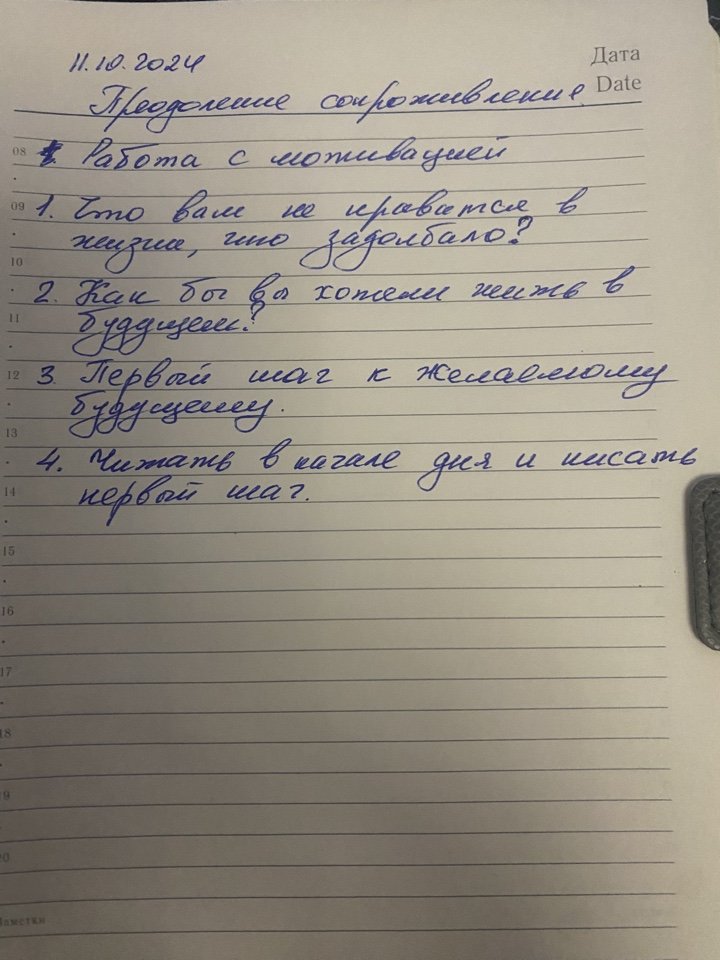 11.10.2024
Дата
Date
Преодоление сопроживление
08 1. Работа с мотивацией
09 1. Что вам не нравится в
жизни, что задолбало?
10
2. Как бы вы хотели жить в
11 будущем?
12 3. Первый шаг к желаемому
будущему.
13
4. Читать в начале дня и писать
14 первый шаг.
15
16
17
18
19
20
Заметки